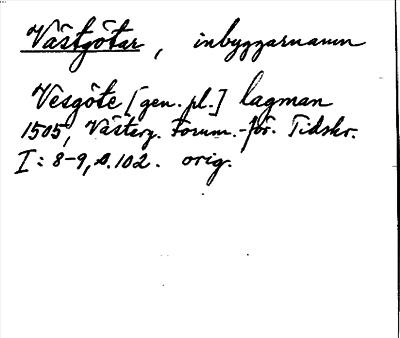 Västgötar, inbyggarnamn
Vesgöte [gen. pl.] lagman
1505, Västerg. Fornm.-för. Tidskr.
I: 8-9, s. 102. orig.